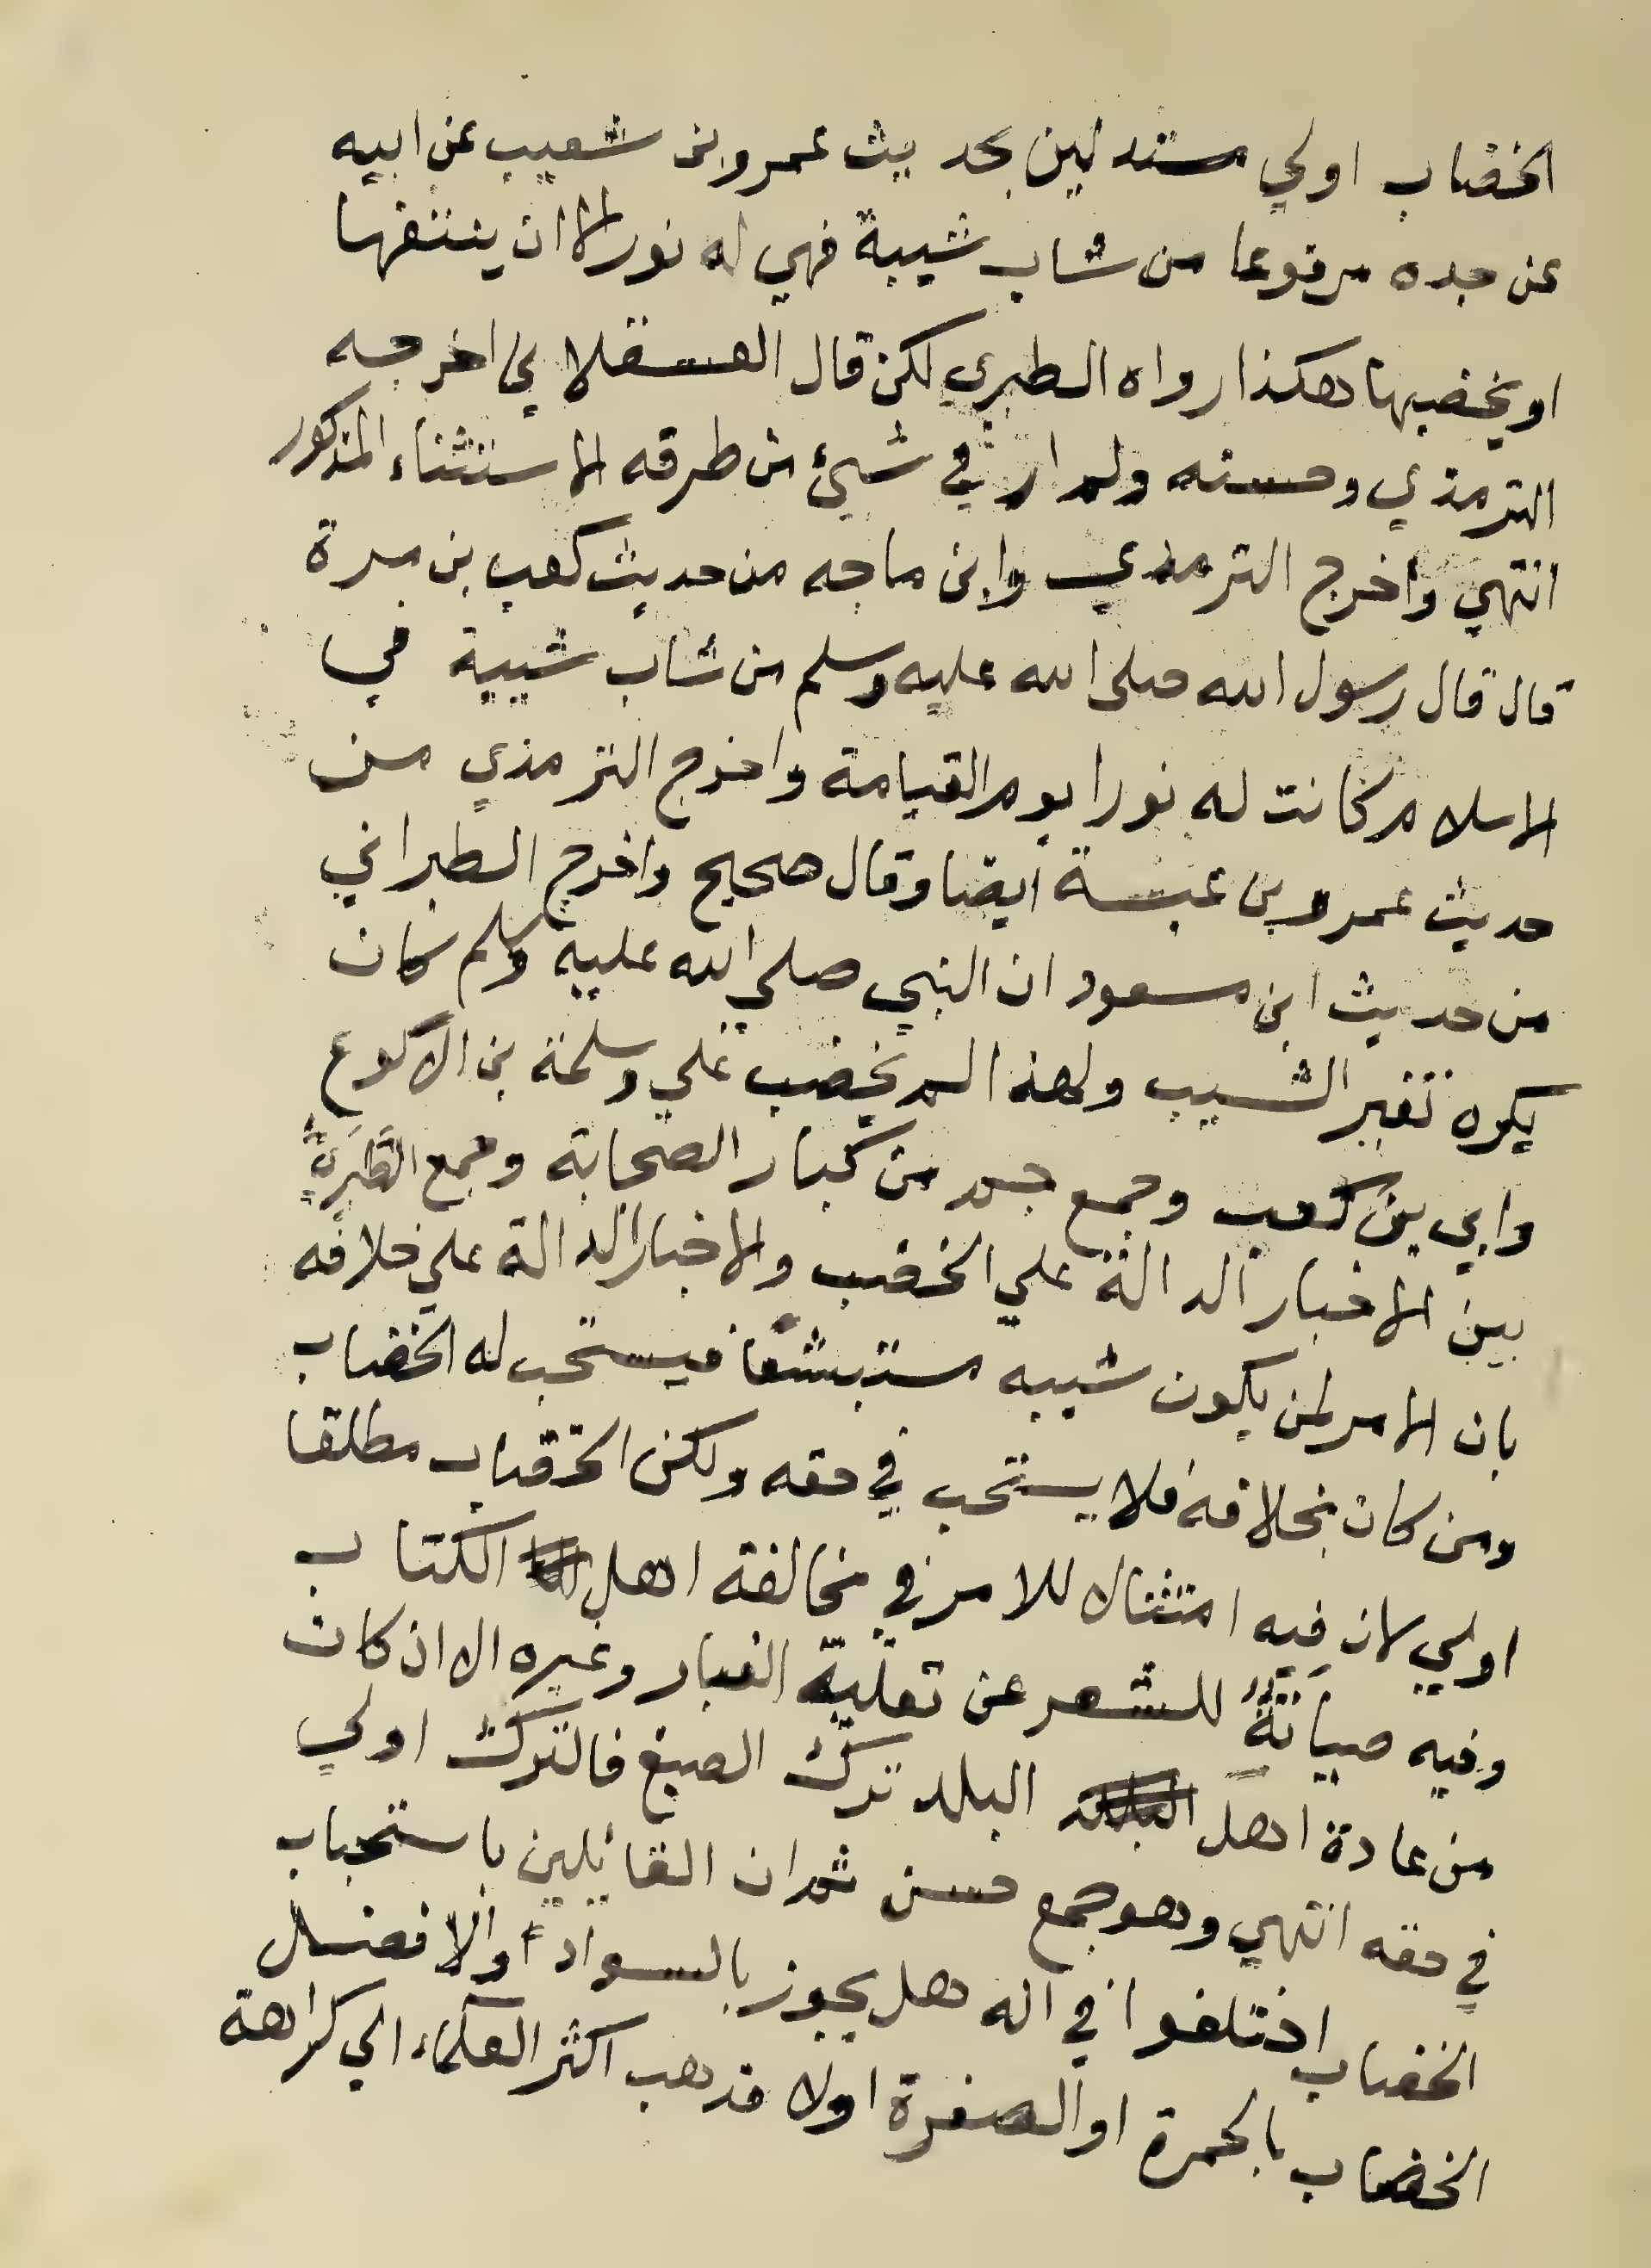 الخضاب اولي مستدلين بحديث عمرو بن شعيب عن ابيه
عن جده مرفوعا من شاب شيبة فهي له نور الا ان ينتفها
او يخضبها هكذا رواه الطبري لكن قال العسقلاني اخرجه
الترمذي وحسنه ولم ار في شيئ من طرقه الاستثناء المذكور
انتهي واخرج الترمذي وابن ماجه من حديث كعب بن مرة
قال قال رسول الله صلى الله عليه وسلم من شاب شيبة في
الاسلام كانت له نورا يوم القيامة واخرج الترمذي من
حديث عمرو بن عبسة ايضا وقال صحيح واخرج الطبراني
من حديث ابن مسعود ان النبي صلي الله عليه وسلم كان
يكره تغير الشيب ولهذا لم يخضب علي وسلمة بن الاكوع
وابي بن كعب وجمع جم من كبار الصحابة وجمع الطَبَرِيُّ
بين الاخبار الدالة علي الخضب والاخبار الدالة علي خلافه
بان الامر لمن يكون شيبه مستبشعًا فيستحب له الخضاب
ومن كان بخلافه فلا يستحب في حقه ولكن الخضاب مطلقا
اولي لان فيه امتثال للامر في مخالفة اهل الكتاب
وفيه صِيَانَةٌ للشعر عن تعلية الغبار وغيره الا ان كان
من عادة اهل البلد ترك الصبغ فالترك اولي
في حقه انتهي وهو جمع حسن ثم ان القائلين باستحباب
الخضاب اختلفوا في انه هل يجوز بالسواد او الافضل
الخضاب بالحمرة او الصفرة اولا فذهب اكثر العلماء الي كراهة